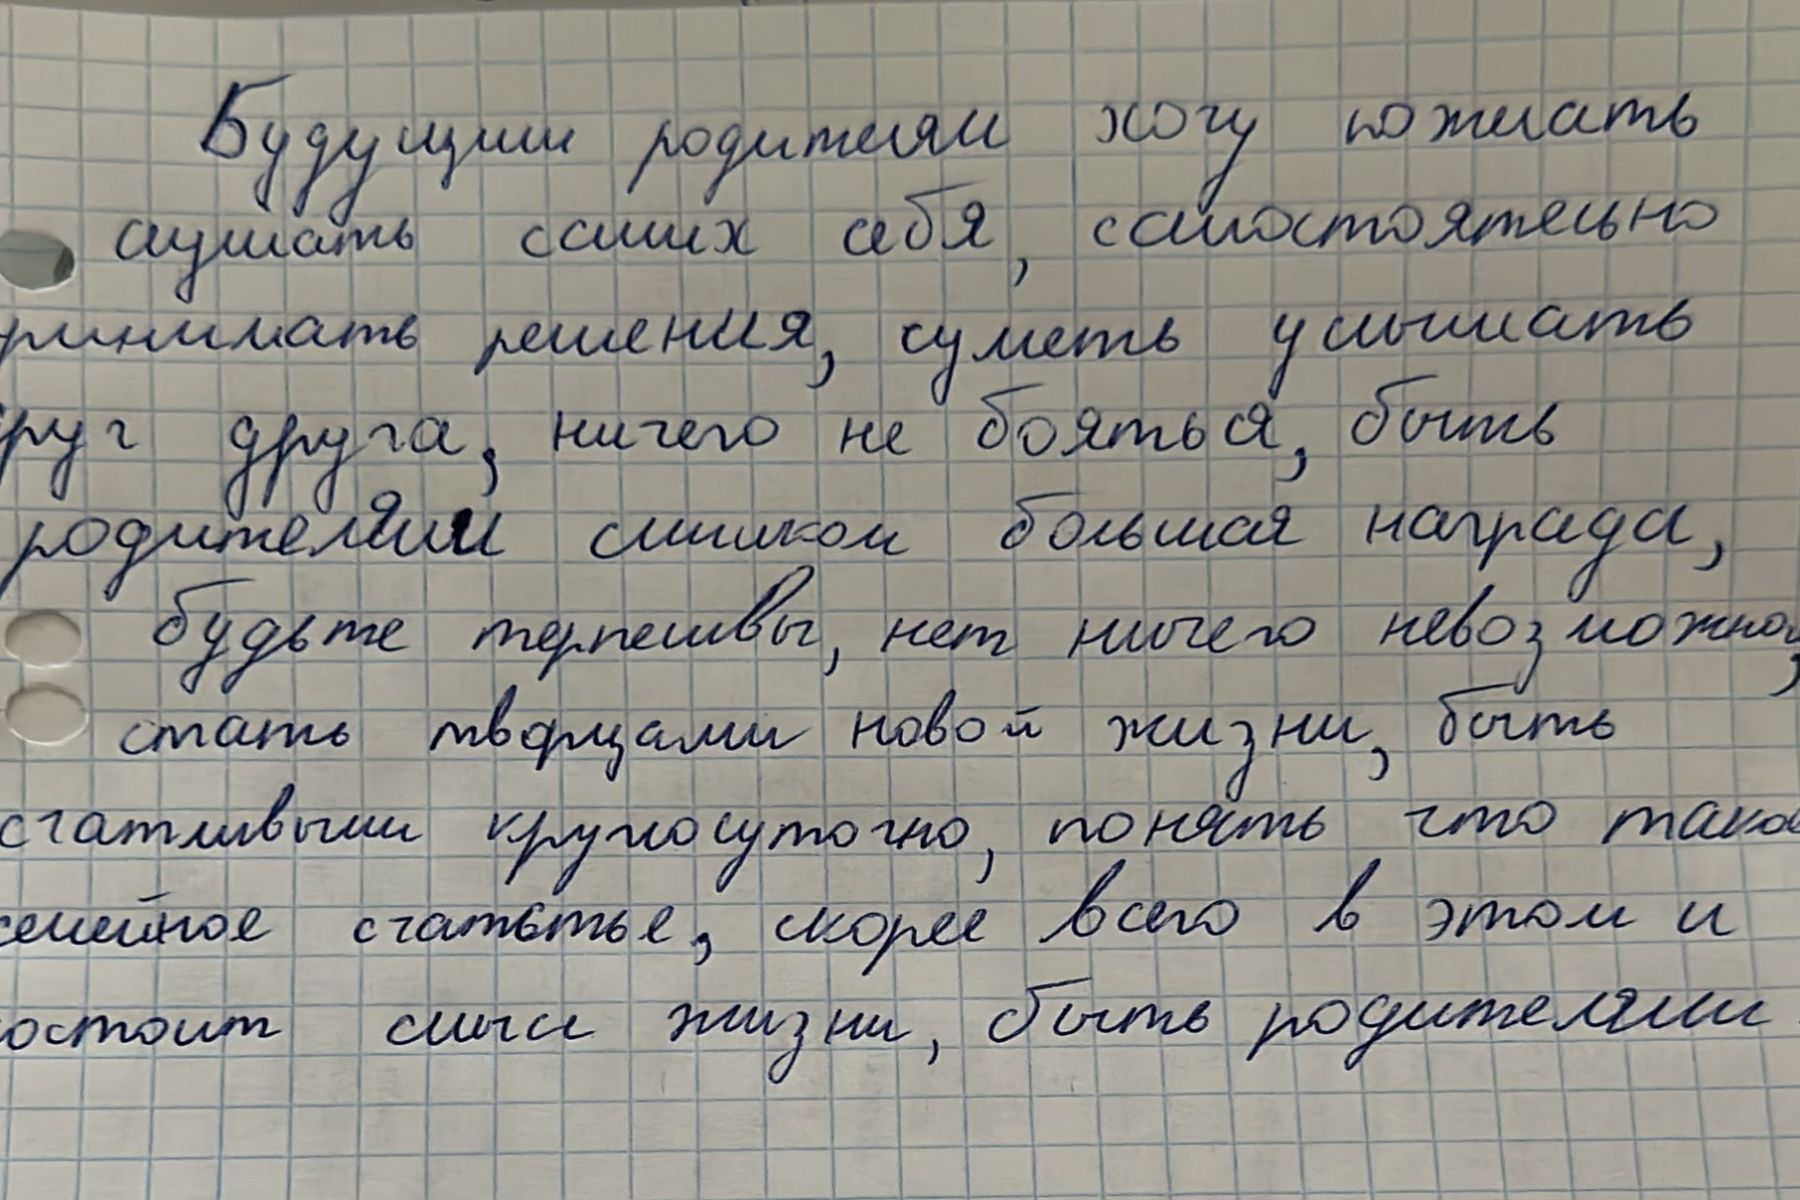 Будущим родителям хочу пожелать
слушать самих себя, самостоятельно
принимать решения, суметь услышать
друг друга, ничего не бояться, быть
родителями слишком большая награда,
будьте терпеливы, нет ничего невозможного,
стать творцами новой жизни, быть
счатливыми круглосуточно, понять что такое
семейное счатьтье, скорее всего в этом и
состоит смысл жизни, быть родителями.